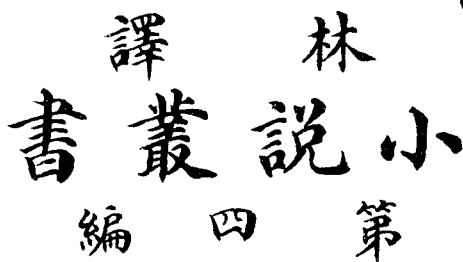 林譯
小説叢書
第四編